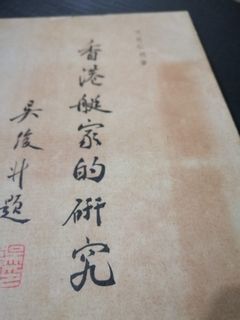 香港艇家的研究
吳俊升題